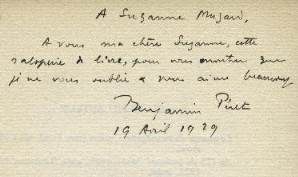 A Suzanne Muzard,
A vous ma chère Suzanne, cette
saloperie de livre, pour vous montrer que
je ne vous oublie & vous aime beaucoup
Benjamin Péret
19 Avril 1929